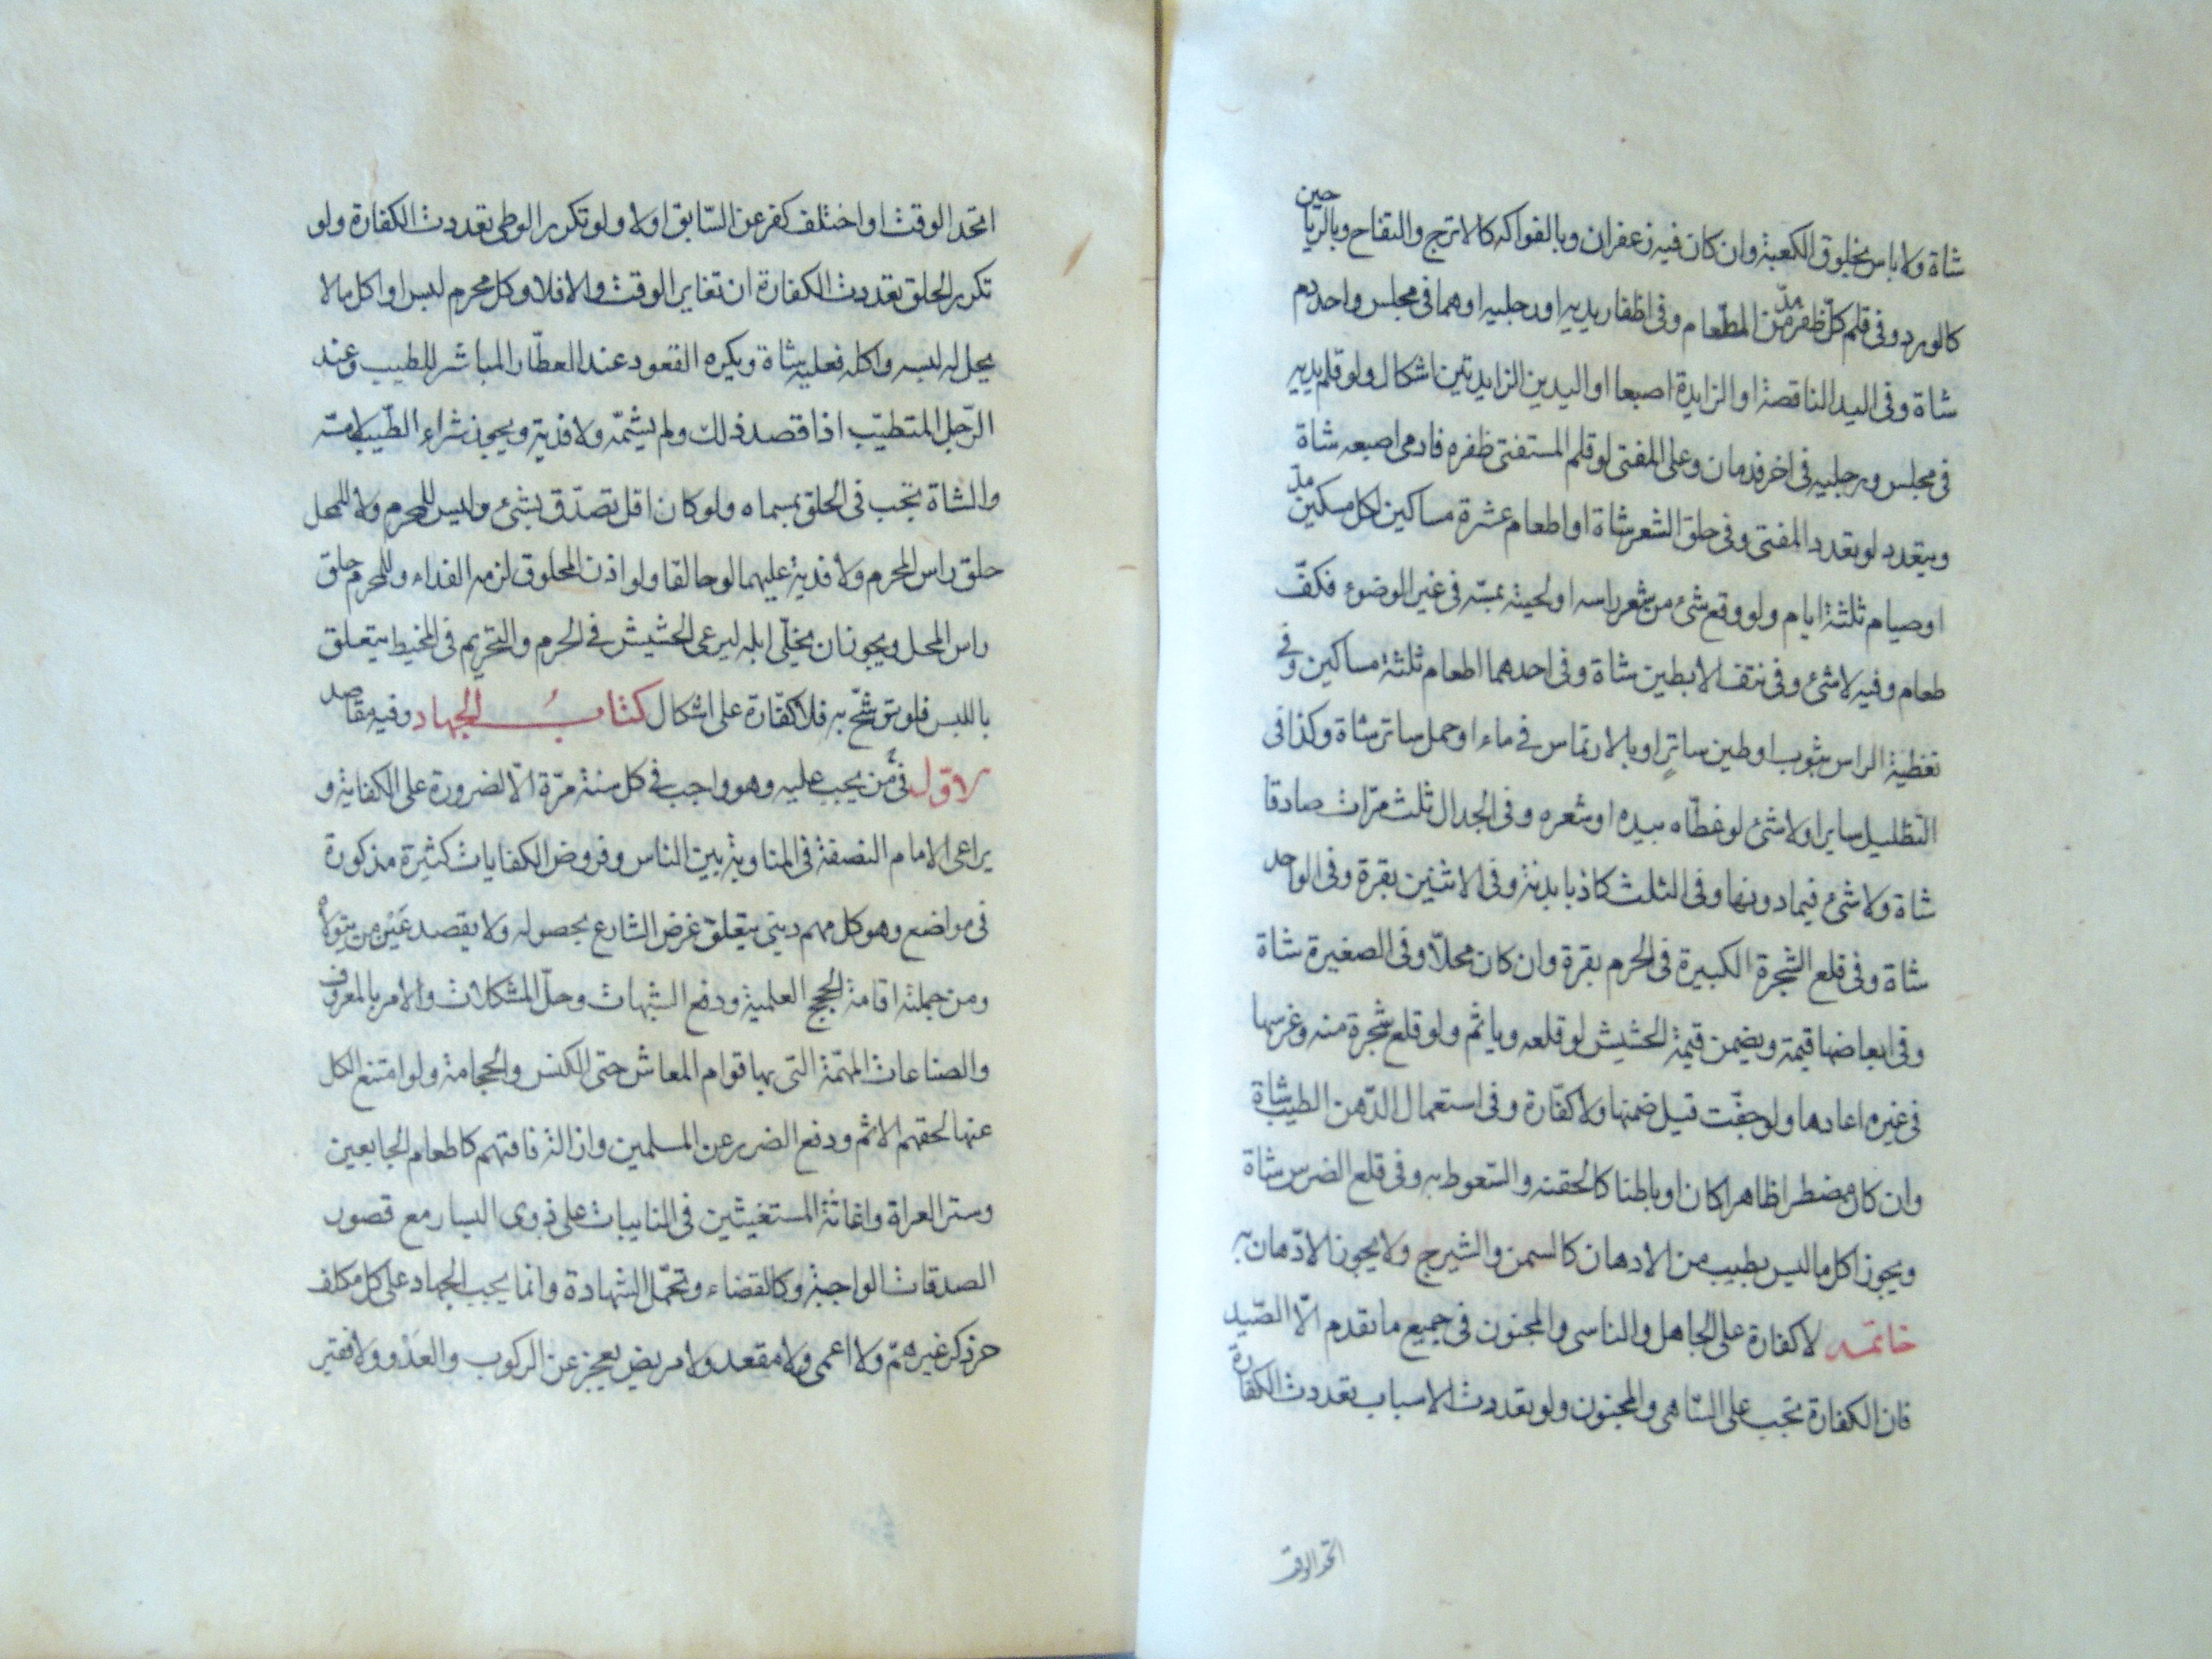 شاة ولا باس بخلوق الكعبة وان كان فيه زعفران وبالفواكه كالاترج والتفاح وبالرياحين
كالورد وفى قلم كلّ ظفر مدّ من الطّعام وفى اظفار يديه او رجليه او هما فى مجلس واحد دم
شاة وفى اليد الناقصة او الزايدة اصبعا او اليدين الزايدتين اشكال ولو قلم يديه
فى مجلس ورجليه فى اخر فدمان وعلى المفتى لو قلم المستفتى ظفره فادمى اصبعه شاة
ويتعدد لو تعدد المفتى وفى حلق الشعر شاة او اطعام عشرة مساكين لكل مسكين مدّ
او صيام ثلثة ايام ولو وقع شئ من شعر راسه او لحيته بمسّه فى غير الوضوء فكفّ
طعام وفيه لا شئ وفى نتف الابطين شاة وفى احدهما اطعام ثلثة مساكين وفى
تغطية الراس بثوب او طين ساترٍ او بالارتماس فى ماء او حمل ساتر شاة وكذا فى
التظليل سايرا ولا شئ لو غطّاه بيده او شعره وفى الجدال ثلث مرّات صادقا
شاة ولا شئ فيما دونها وفى الثلث كاذبا بدنة وفى الاثنين بقرة وفى الواحد
شاة وفى قلع الشجرة الكبيرة فى الحرم بقرة وان كان محلاّ وفى الصغيرة شاة
وفى ابعاضها قيمة ويضمن قيمة الحشيش لو قلعه وياثم ولو قلع شجرة منه وغرسها
فى غيره اعادها ولو جفّت قيل ضمنها ولا كفّارة وفى استعمال الدّهن الطيب شاة
وان كان مضطرا ظاهرا كان او باطنا كالحقنة والسّعوط به وفى قلع الضرس شاة
ويجوز اكل ما ليس بطيب من الادهان كالسمن والشيرج ولا يجوز الادّهان به
خاتمة لا كفارة على الجاهل والناسى والمجنون فى جميع ما تقدم الّا الصّيد
فان الكفارة تجب على السّاهى والمجنون ولو تعددت الاسباب تعددت الكفارة
اتحد الوقت
اتحد الوقت او اختلف كفر عن السّابق او لا ولو تكرر الوطى تعددت الكفارة ولو
تكرر الحلق تعددت الكفارة ان تغاير الوقت والا فلا وكل محرم لبس او اكل ما لا
يحل له لبسه واكله فعليه شاة ويكره القعود عند العطّار المباشر للطيب وعند
الرّجل المتطيّب اذا قصد ذلك ولم يشمّه ولا فدية ويجوز شراء الطّيب لا مسّه
والشاة تجب فى الحلق بمسماه ولو كان اقل تصدّق بشئ وليس للمحرم ولا للمحل
حلق راس المحرم ولا فدية عليهما لو خالفا ولو اذن المحلوق لزمه الفداء وللمحرم حلق
راس المحل ويجوز ان يخلّى ابله ليرعى الحشيش فى الحرم والتحريم فى المخيط يتعلق
باللبس فلو توشّح به فلا كفّارة على اشكال كتاب الجهاد وفيه مقاصد
الاوّل فى من يجب عليه وهو واجب فى كل سنة مرّة الّا لضرورة على الكفاية و
يراعى الامام النصفة فى المناوبة بين الناس وفروض الكفايات كثيرة مذكورة
فى مواضع وهو كل مهم دينى يتعلّق غرض الشارع بحصوله ولا يقصد عَيْن من يتولاّه
ومن جملته اقامة الحجج العلمية ودفع الشبهات وحلّ المشكلات والامر بالمعروف
والصناعات المهمّة التى بها قوام المعاش حتى الكنس والحجامة ولو امتنع الكل
عنها لحقهم الاثم ودفع الضرر عن المسلمين وازالة فاقتهم كاطعام الجايعين
وستر العراة واغاثة المستغيثين فى النايبات على ذوى اليسار مع قصور
الصدقات الواجبة وكالقضاء وتحمّل الشهادة وانما يجب الجهاد على كل مكلف
حر ذكر غير همّ ولا اعمى ولا مقعد ولا مريض يعجز عن الركوب والعَدْو ولا فقير